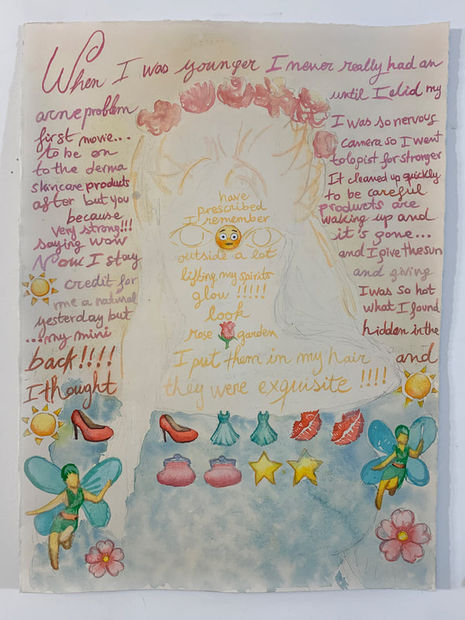 When I was younger I never really had an
acne problem until I did my
first movie... I was so nervous
to be on camera so I went
to the derma tologist for stronger
skincare products It cleared up quickly
after but you have to be careful
because prescribed products are
very strong!!! I remember waking up and
saying wow it's gone...
Now I stay outside a lot and I give the sun
credit for lifting my spirits and giving
me a natural glow !!!!! I was so hot
yesterday but look what I found
...my mini rose garden hidden in the
back!!!! I put them in my hair and
I thought they were exquisite !!!!